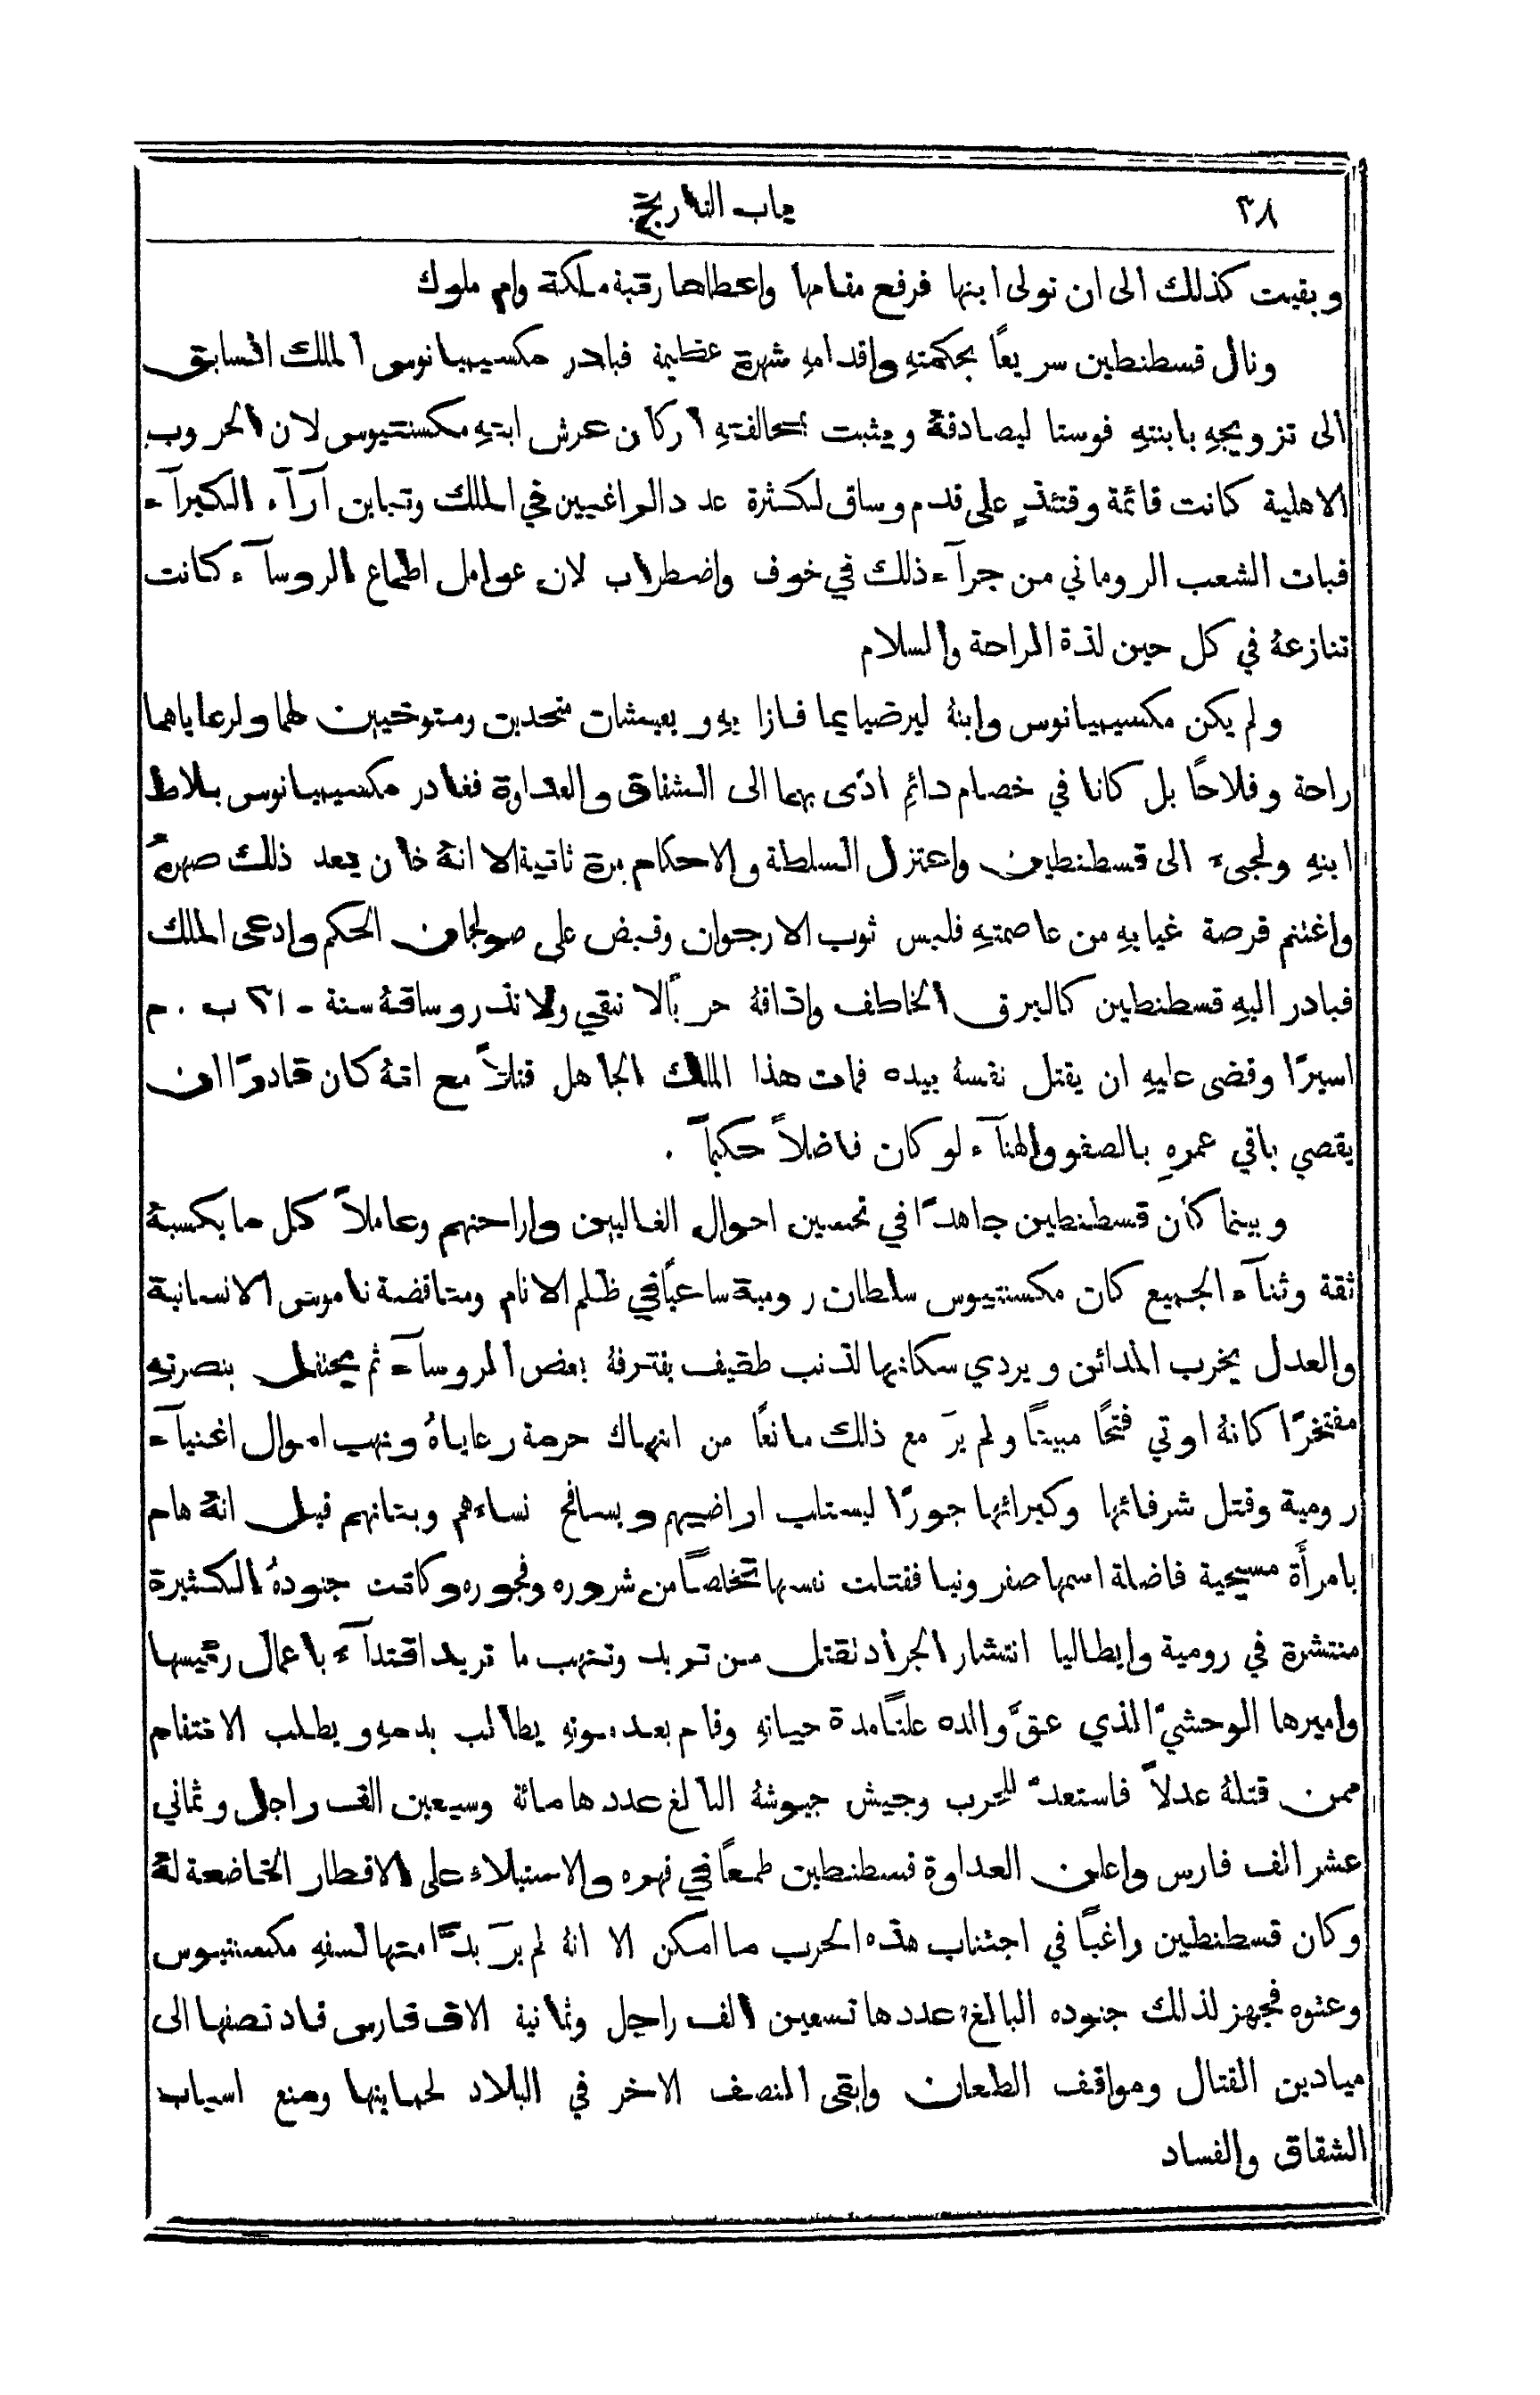 ٣٨
باب التاريخ
وبقيت كذلك الى ان تولى ابنها فرفع مقامها واعطاها رتبة ملكة وام ملوك
ونال قسطنطين سريعًا بحكمتهِ واقدامهِ شهرة عظيمة فبادر مكسيميانوس الملك السابق
الى تزويجهِ بابنتهِ فوستا ليصادقهُ ويثبت بمحالفتهِ اركان عرش ابنهِ مكسنتيوس لان الحروب
الاهلية كانت قائمة وقتئذٍ على قدم وساق لكثرة عدد الراغبين في الملك وتباين آرآء الكبرآء
فبات الشعب الروماني من جرآء ذلك في خوف واضطراب لان عوامل اطماع الروسآء كانت
تنازعهُ في كل حين لذة الراحة والسلام
ولم يكن مكسيميانوس وابنهُ ليرضيا بما فازا بهِ ويعيشان متحدين ومتوخيين لهما ولرعاياهما
راحة وفلاحًا بل كانا في خصام دائمٍ ادّى بهما الى الشقاق والعداوة فغادر مكسيميانوس بلاط
ابنهِ ولجىء الى قسطنطين واعتزل السلطة والاحكام مرة ثانية الا انهُ خان بعد ذلك صهرهُ
واغتنم فرصة غيابهِ من عاصمتهِ فلبس ثوب الارجوان وقبض على صولجان الحكم وادعى الملك
فبادر اليهِ قسطنطين كالبرق الخاطف واذاقهُ حربًا لا تبقي ولا تذر وساقهُ سنة ٣١٠ ب . م
اسيرًا وقضى عليهِ ان يقتل نفسهُ بيده فمات هذا الملك الجاهل قتلاً مع انهُ كان قادرًا ان
يقضي باقي عمرهِ بالصفو والهنآء لو كان فاضلاً حكيمًا .
وبينما كان قسطنطين جاهدًا في تحسين احوال الغاليين واراحتهم وعاملاً كل ما يكسبهُ
ثقة وثنآء الجميع كان مكسنتيوس سلطان رومية ساعيًا في ظلم الانام ومناقضة ناموس الانسانية
والعدل يخرب المدائن ويردي سكانها لذنب طفيف يقترفهُ بعض المروسآء ثم يحتفل بنصرتهِ
مفتخرًا كانهُ اوتي فتحًا مبينًا ولم يرَ مع ذلك مانعًا من انتهاك حرمة رعاياهُ ونهب اموال اغنيآء
رومية وقتل شرفائها وكبرائها جورًا ليستلب اراضيهم ويسافح نساءهم وبناتهم قيل انهُ هام
بامرأة مسيحية فاضلة اسمها صفرونيا فقتلت نفسها تخلصًا من شروره وفجوره وكانت جنودهُ الكثيرة
منتشرة في رومية وايطاليا انتشار الجراد تقتل من تريد وتنهب ما تريد اقتدآء باعمال رئيسها
واميرها الوحشيّ الذي عقّ والده علنًا مدة حياتهِ وقام بعد موتهِ يطالب بدمهِ ويطلب الانتقام
ممن قتلهُ عدلاً فاستعدّ للحرب وجيش جيوشهُ البالغ عددها مائة وسبعين الف راجل وثماني
عشر الف فارس واعلن العداوة قسطنطين طمعًا في قهره والاستيلاء على الاقطار الخاضعة لهُ
وكان قسطنطين راغبًا في اجتناب هذه الحرب ما امكن الا انهُ لم يرَ بدًّا منها لسفهِ مكسنتيوس
وعتوه فجهز لذلك جنوده البالغ عددها تسعين الف راجل وثمانية الاف فارس قاد نصفها الى
ميادين القتال ومواقف الطعان وابقى النصف الاخر في البلاد لحمايتها ومنع اسباب
الشقاق والفساد